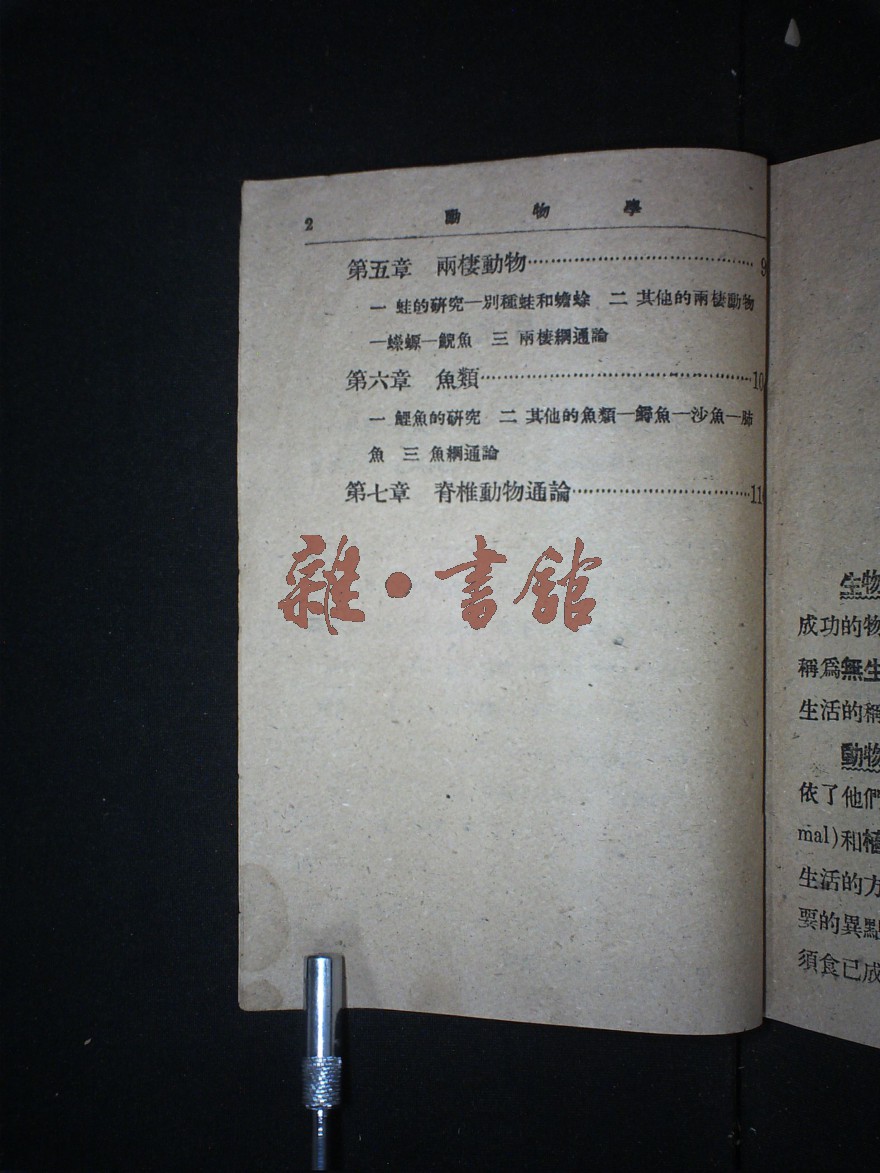 2 動物學
第五章 兩棲動物……………………………9
一 蛙的研究—別種蛙和蟾蜍 二 其他的兩棲動物
—蠑螈—鯢魚 三 兩棲綱通論
第六章 魚類……………………………………10
一 鯉魚的研究 二 其他的魚類—鱘魚—沙魚—肺
魚 三 魚綱通論
第七章 脊椎動物通論………………………11
雜·書館
生物
成功的物
稱爲無生
生活的稱
動物
依了他們
mal)和植
生活的方
要的異點
須食已成